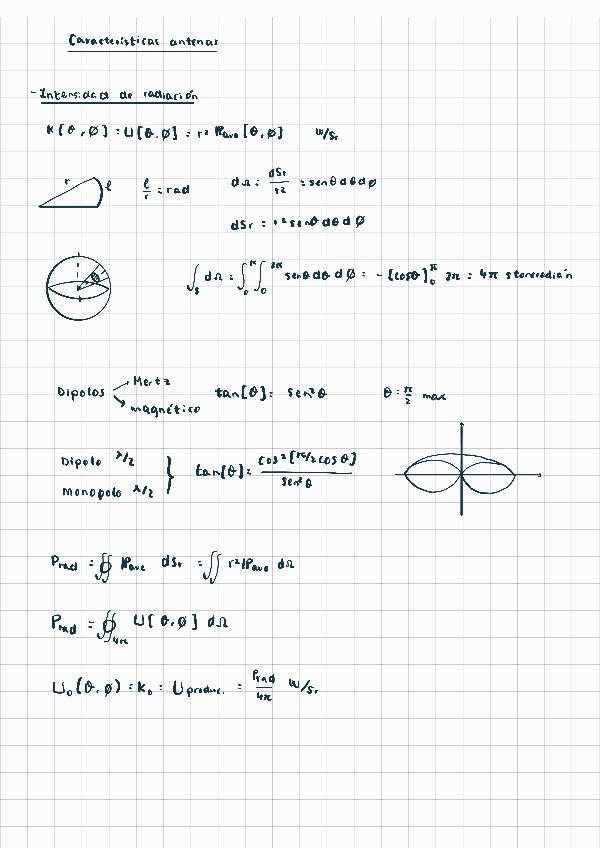 Características antenas
- Intensidad de radiación
K[θ,Ø] = U[θ,Ø] = r² Pave [θ,Ø] W/Sr
r ℓ ℓ/r = rad dΩ = dSr/r² = senθ dθ dØ
dSr = r² senθ dθ dØ
∫s dΩ = ∫₀^π ∫₀^2π senθ dθ dØ = - [cosθ]₀^π 2π = 4π stereradián
Dipolos Hertz magnético tan[θ] = sen²θ θ = π/2 max
Dipolo λ/2
Monopolo λ/2 } tan[θ] = cos²[π/2 cosθ]/sen²θ
Prad = ∯ Pave dSr = ∬ r² Pave dΩ
Prad = ∯4π U[θ,Ø] dΩ
U₀(θ,Ø) = K₀ = U produc. = Prad/4π W/Sr